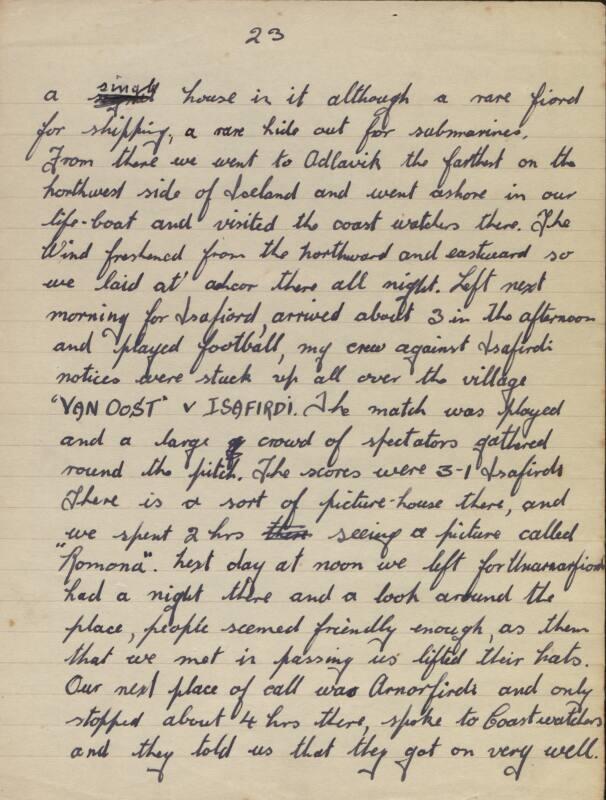 23
a single house in it although a rare fiord
for shipping, a rare hide out for submarines.
From there we went to Adlavik the farthest on the
northwest side of Iceland and went ashore in our
life-boat and visited the coast watchers there. The
Wind freshened from the northward and eastward so
we laid at anchor there all night. Left next
morning for Isafiord, arrived about 3 in the afternoon
and played football, my crew against Isafirdi
notices were stuck up all over the village
"VAN OOST" V ISAFIRDI. The match was played
and a large crowd of spectators gathered
round the pitch. The scores were 3-1 Isafirdi
There is a sort of picture-house there, and
we spent 2 hrs there seeing a picture called
"Romona". Next day at noon we left for Unarnarfiord
had a night there and a look around the
place, people seemed friendly enough, as them
that we met in passing us lifted their hats.
Our next place of call was Arnorfirdi and only
stopped about 4 hrs there, spoke to Coastwatchers
and they told us that they got on very well.